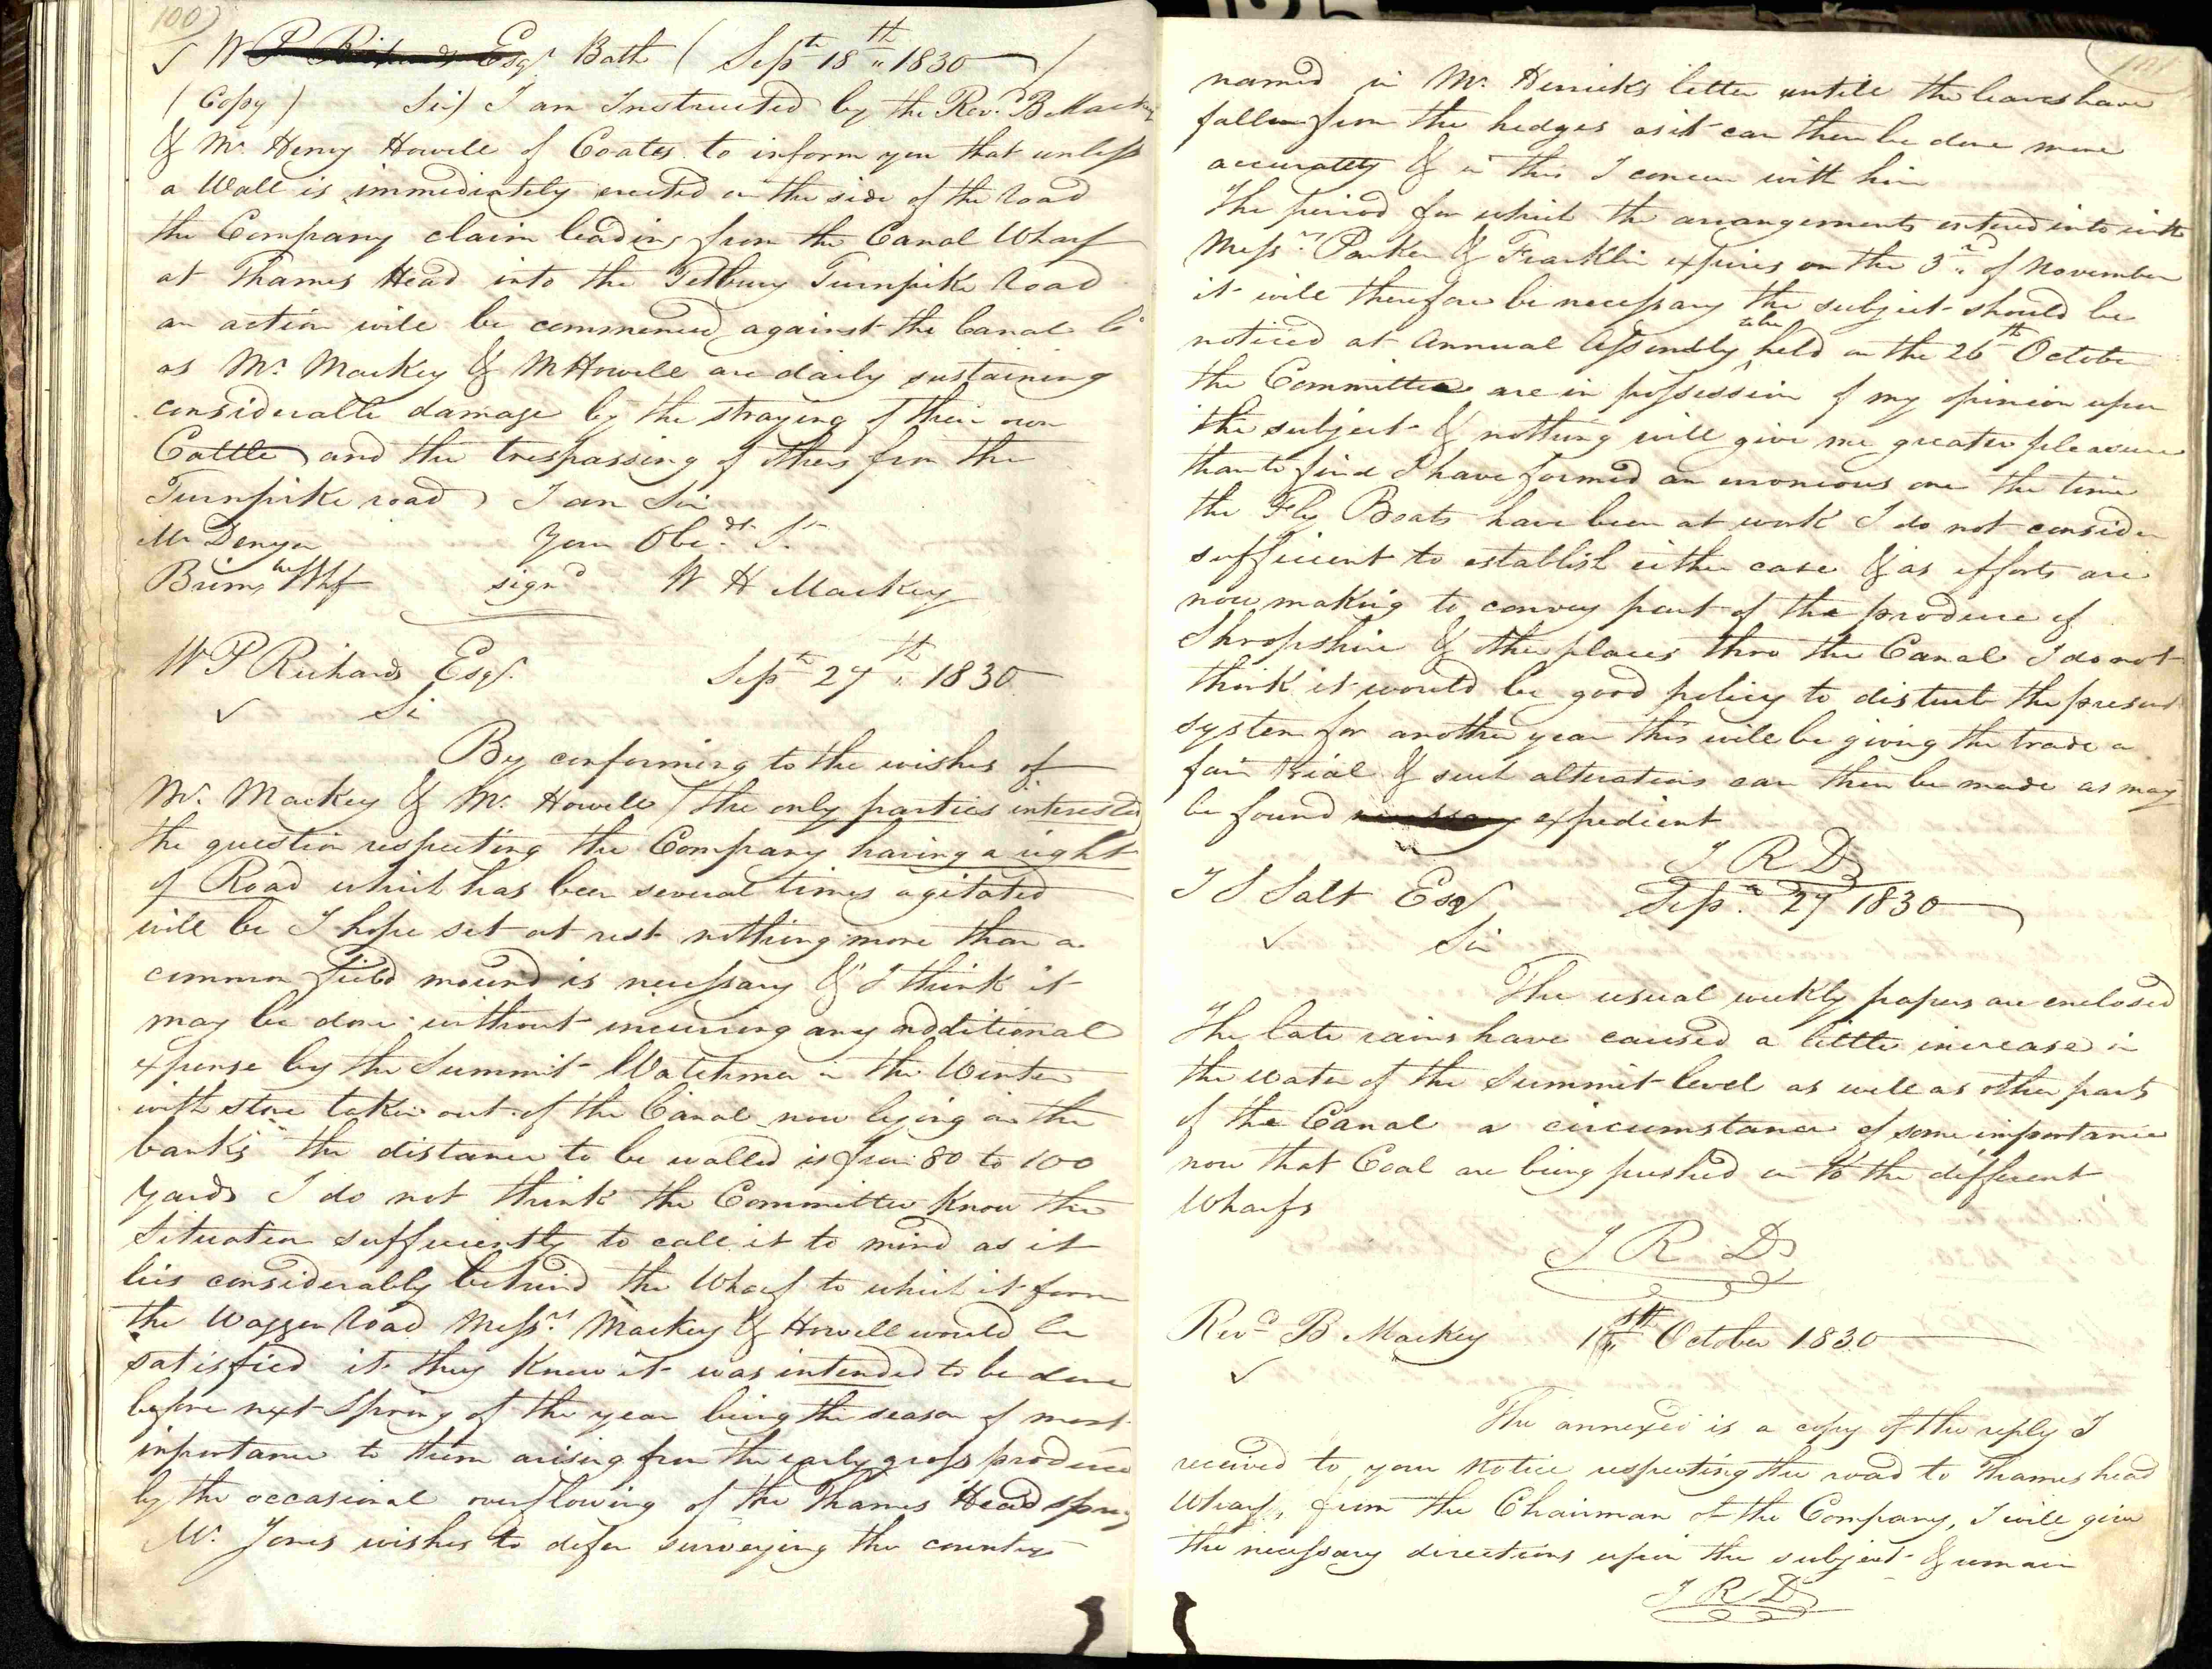 100
✓ W P Richards Esqr Bath ( Septr 18th 1830 )
( Copy ) Sir) I am Instructed by the Revd. B Mackey
& Mr. Henry Howell of Coates to inform you that unless
a Wall is immediately erected on the side of the road
the Company claim leading from the Canal Wharf
at Thames Head into the Tetbury Turnpike road
an action will be commenced against the Canal Co
as Mr Mackey & M Howell are daily sustaining
considerable damage by the straying of their own
Cattle and the trespassing of others from the
Turnpike road) I am Sir
Mr Denyer Your Obedt. St
Brims Whf signd W H Mackey
W P Richards Esqr. Septr 27th 1830
✓ Sir
By conforming to the wishes of
Mr. Mackey & Mr. Howell (the only parties interested
the question respecting the Company having a right
of Road which has been several times agitated
will be I hope set at rest nothing more than a
common field mound is necessary & I think it
may be done without incurring any additional
expense by the Summit Watchman in the Winter
with stone taken out of the Canal now lying on the
banks the distance to be walled is from 80 to 100
Yards I do not think the Committee know the
Situation sufficiently to call it to mind as it
lies considerably behind the Wharf to which it forms
the Waggon Road Messrs. Mackey & Howell would be
satisfied if they knew it was intended to be done
before next Spring of the year being the season of most
importance to them arising from the early grass produced
by the occasional overflowing of the Thames Head spring
Mr. Jones wishes to defer surveying the country
101
named in Mr. Herricks letter untill the leaves have
fallen from the hedges as it can then be done more
accurately & in this I concur with him
The period for which the arrangements entered into with
Messrs Parker & Franklin expires on the 3rd of November
it will therefore be necessary the subject should be
noticed at Annual Assembly to be held on the 26th October
the Committee are in possession of my opinion upon
the subject & nothing will give me greater pleasure
than to find I have formed an erroneous one the time
the Fly Boats have been at work I do not consider
sufficient to establish either case & as efforts are
now making to convey part of the produce of
Shropshire & other places thro the Canal I do not
think it would be good policy to disturb the present
system for another year this will be giving the trade a
fair trial & such alterations can then be made as may
be found necessary expedient
J R D
T S Salt Esqr Septr. 27 1830
✓ Sir
The usual weekly papers are enclosed
The late rains have caused a little increase in
the water of the Summit level as well as other parts
of the Canal a circumstance of some importance
now that Coal are being pushed on to the different
Wharfs
J R D
Revd B Mackey 1st October 1830
✓
The annexed is a copy of the reply I
received to your notice respecting the road to Thames head
Wharf, from the Chairman of the Company, I will give
the necessary directions upon the subject & remain
J R D